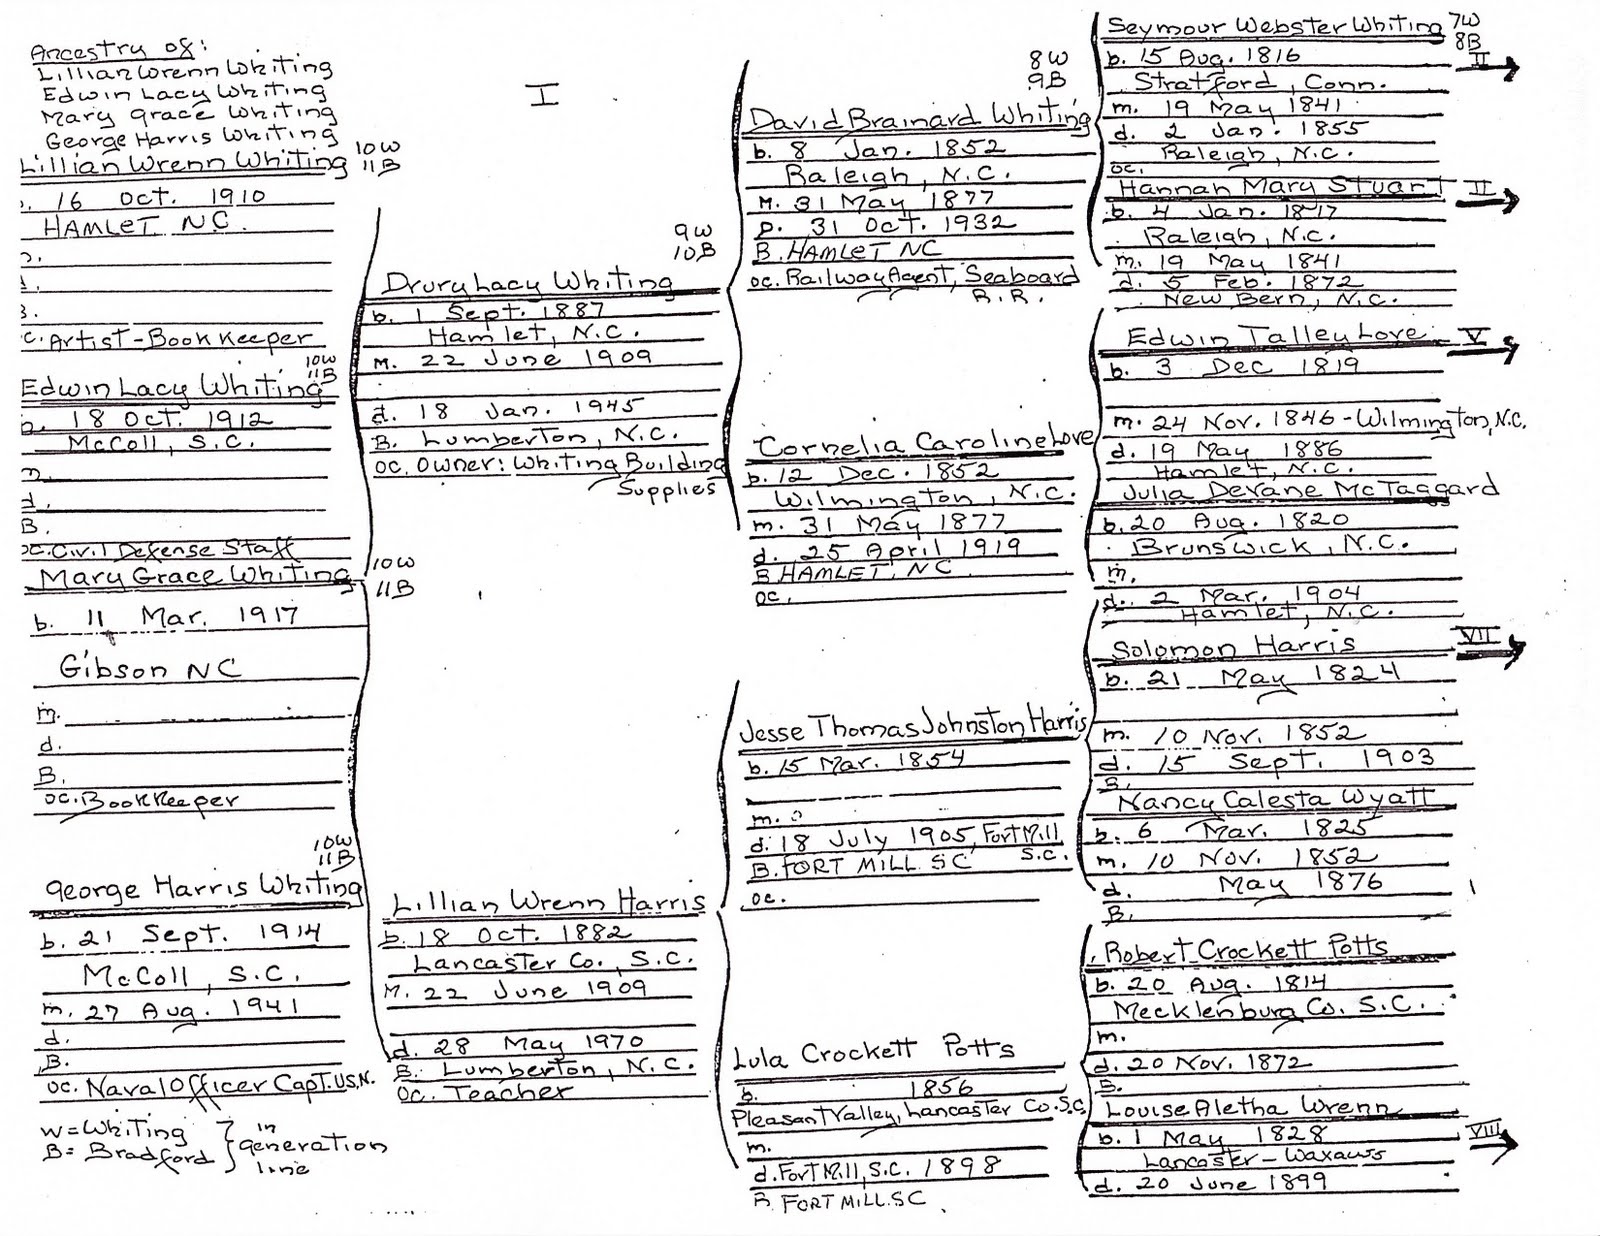 Ancestry of:
Lillian Wrenn Whiting
Edwin Lacy Whiting
Mary Grace Whiting
George Harris Whiting
Lillian Wrenn Whiting 10W
11B
. 16 Oct. 1910
HAMLET NC.
c. Artist-Bookkeeper
10W
11B
Edwin Lacy Whiting
18 Oct. 1912
McColl, S.C.
m
d.
B.
oc. Civil Defense Staff
Mary Grace Whiting 10W
11B
b. 11 Mar. 1917
Gibson NC
m.
d.
B.
oc. Bookkeeper
10W
11B
George Harris Whiting
b. 21 Sept. 1914
McColl, S.C.
m. 27 Aug. 1941
d.
B.
oc. Naval Officer Capt. US.N.
W = Whiting
B = Bradford
in
generation
line
I
9W
10B
Drury Lacy Whiting
b. 1 Sept. 1887
Hamlet, N.C.
m. 22 June 1909
d. 18 Jan. 1945
B. Lumberton, N.C.
oc. Owner: Whiting Building
Supplies
Lillian Wrenn Harris
b. 18 Oct. 1882
Lancaster Co., S.C.
M. 22 June 1909
d. 28 May 1970
B. Lumberton, N.C.
oc. Teacher
8W
9B
David Brainard Whiting
b. 8 Jan. 1852
Raleigh, N.C.
M. 31 May 1877
D. 31 Oct. 1932
B. HAMLET NC
oc. Railway Agent, Seaboard
R.R.
Cornelia Caroline Love
b. 12 Dec. 1852
Wilmington, N.C.
m. 31 May 1877
d. 25 April 1919
B. HAMLET, NC
oc.
Jesse Thomas Johnston Harris
b. 15 Mar. 1854
m.
d. 18 July 1905, Fort Mill
S.C.
B. FORT MILL SC
oc.
Lula Crockett Potts
b. 1856
Pleasant Valley, Lancaster Co. S.C.
m.
d. Fort Mill, S.C. 1898
B. FORT MILL. SC
Seymour Webster Whiting 7W
8B
II
b. 15 Aug. 1816
Stratford, Conn.
m. 19 May 1841
d. 2 Jan. 1855
Raleigh, N.C.
oc.
Hannah Mary Stuart II
b. 4 Jan. 1817
Raleigh, N.C.
m. 19 May 1841
d. 5 Feb. 1872
New Bern, N.C.
Edwin Talley Love V
b. 3 Dec 1819
m. 24 Nov. 1846 - Wilmington, N.C.
d. 19 May 1886
Hamlet, N.C.
Julia Devane McTaggard
b. 20 Aug. 1820
Brunswick, N.C.
m.
d. 2 Mar. 1904
Hamlet, N.C.
Solomon Harris VII
b. 21 May 1824
m. 10 Nov. 1852
d. 15 Sept. 1903
B.
Nancy Calesta Wyatt
b. 6 Mar. 1825
m. 10 Nov. 1852
d. May 1876
B.
Robert Crockett Potts
b. 20 Aug. 1814
Mecklenburg Co. S.C.
m.
d. 20 Nov. 1872
B.
Louise Aletha Wrenn
b. 1 May 1828 VIII
Lancaster - Waxaws
d. 20 June 1899